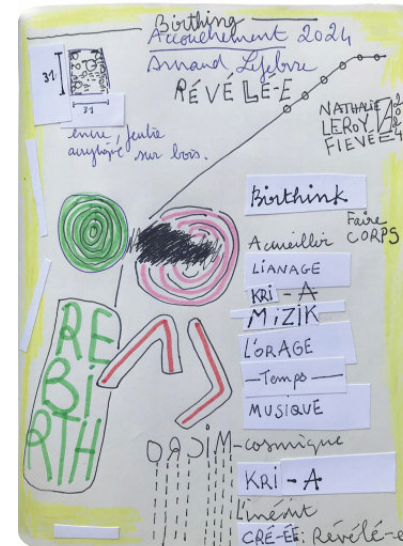 Birthing
Accouchement 2024
Arnaud Lefebvre
RÉVÉLÉ-E
31
31
encre feutre
sur bois.
NATHALIE
LEROY
FIEVÉE
2024
Birthink
Faire
CORPS
Accueillir
LIANAGE
KRI-A
MiZIK
L'ORAGE
-Temps-
MUSIQUE
REBiRTH
cosmique
KRi-A
L'inédit
CRÉ-ÉE: Révélé-e